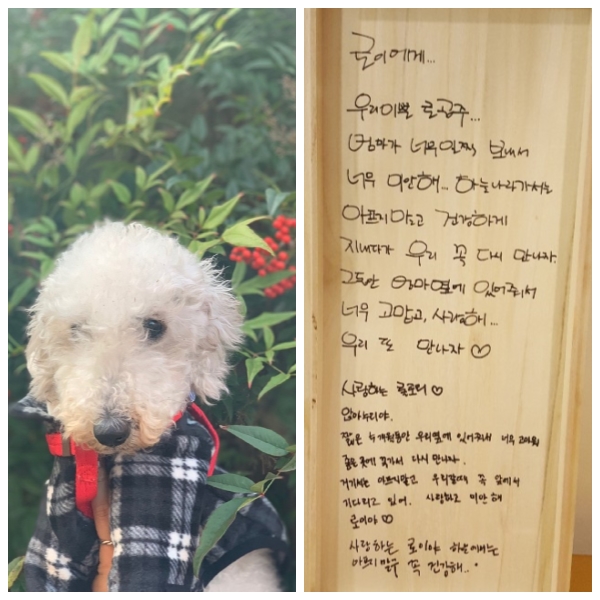 로이에게...
우리이쁜 로공주...
엄마가 너무일찍 보내서
너무 미안해... 하늘나라가서는
아프지말고 건강하게
지내다가 우리 꼭 다시 만나자.
그동안 엄마옆에 있어줘서
너무 고맙고, 사랑해...
우리 또 만나자 ♡
사랑하는 ♡
엄마누리야.
짧은 개월동안 우리옆에 있어줘서 너무 고마워
좋은곳에 가서 다시 만나자.
거기서는 아프지말고 우리갈때 꼭 앞에서
기다리고 있어. 사랑하고 미안해
로이야 ♡
사랑하는 로이야 하늘에서는
아프지 말구 꼭 건강해..